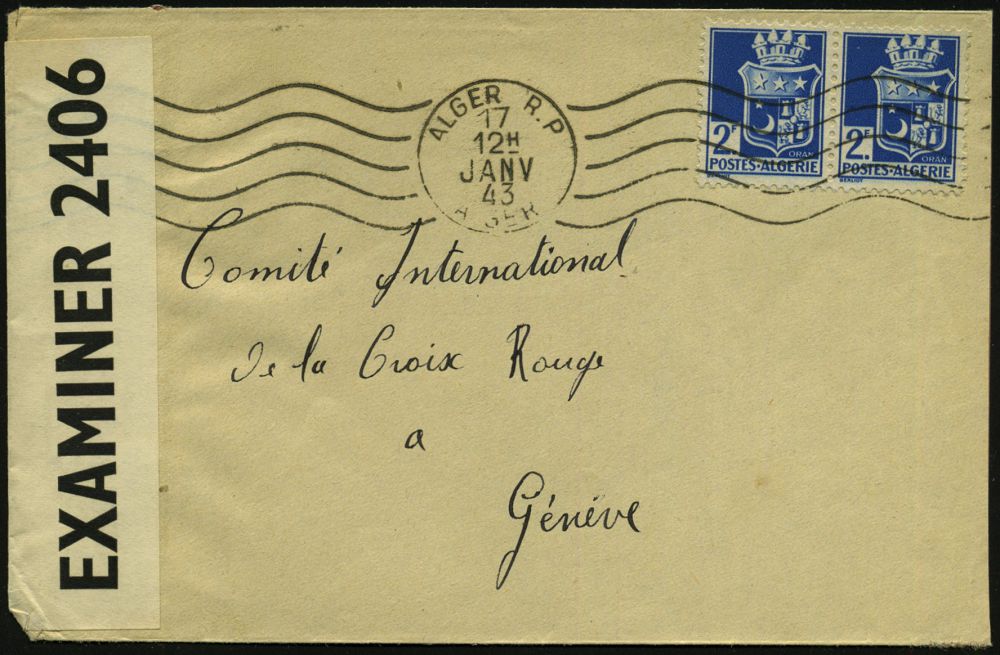 EXAMINER 2406
ALGER R.P
17
12H
JANV
43
ALGER
2F
ORAN
POSTES-ALGERIE
2F
ORAN
POSTES-ALGERIE
BERLIOT
Comité International
De la Croix Rouge
a
Généve